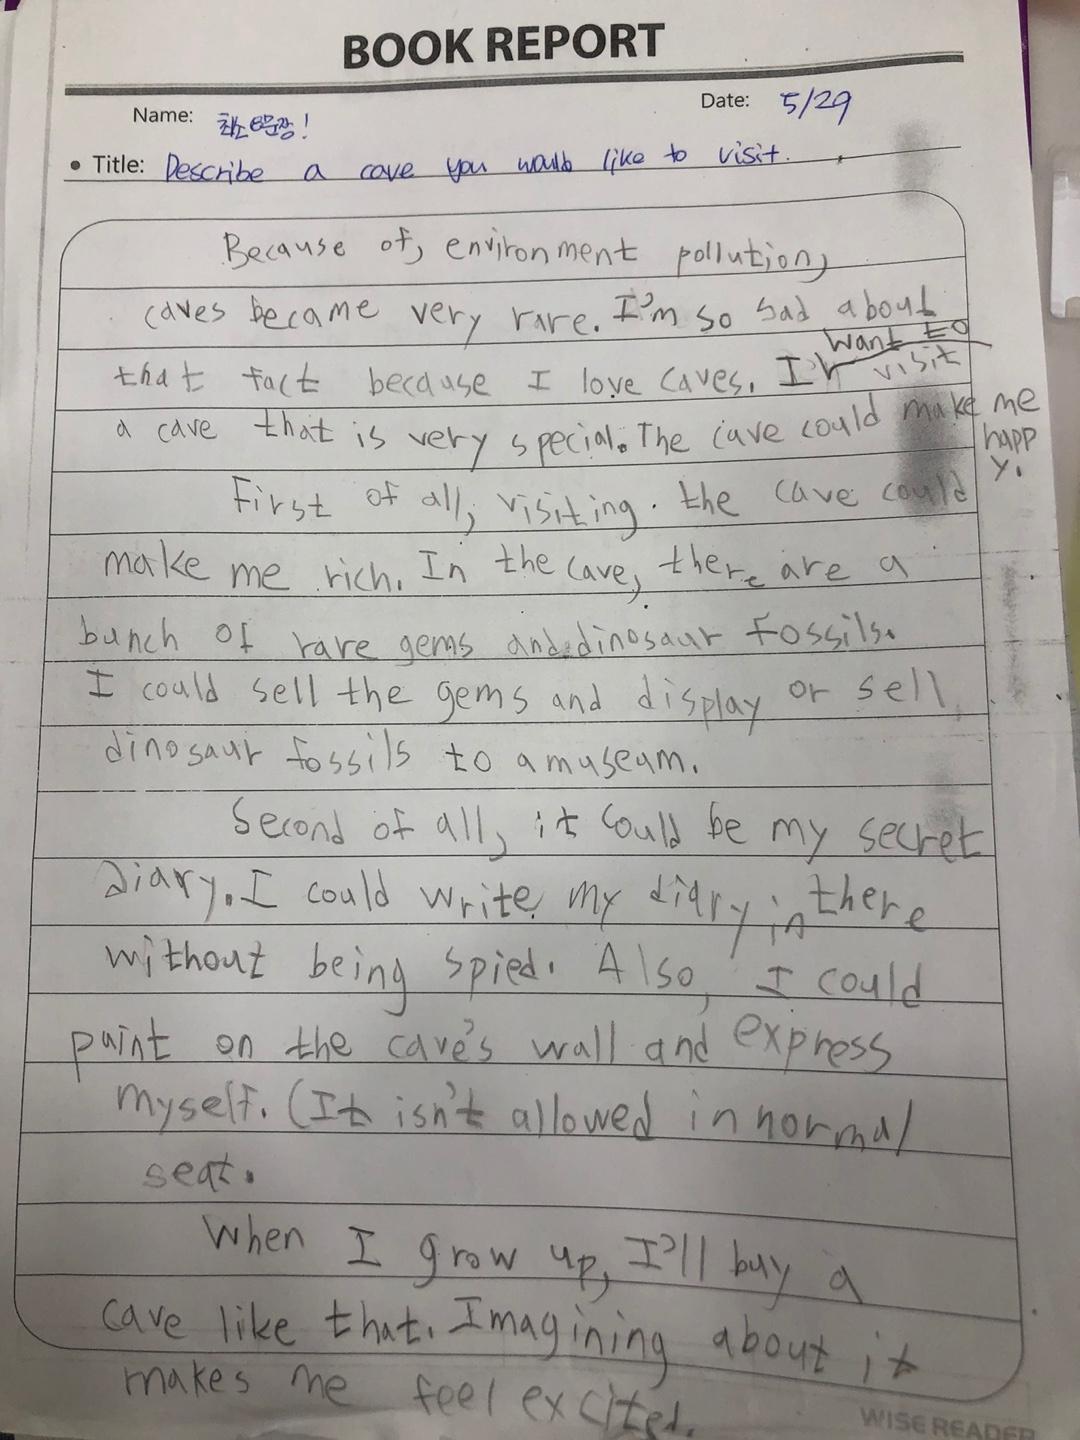 BOOK REPORT
Name: 최소 8문장!
Date: 5/29
• Title: Describe a cave you would like to visit.
Because of, environment pollution,
caves became very rare. I'm so sad about
that fact because I love caves. I want to visit
a cave that is very special. The cave could make me happy.
First of all, visiting. the cave could
make me rich. In the cave, there are a
bunch of rare gems and dinosaur fossils.
I could sell the gems and display or sell
dinosaur fossils to a museam.
Second of all, it could be my secret
diary. I could write my diary in there
without being spied. Also, I could
paint on the cave's wall and express
myself. (It isn't allowed in normal
seat.
When I grow up, I'll buy a
cave like that. Imagining about it
makes me feel excited.
WISE READER